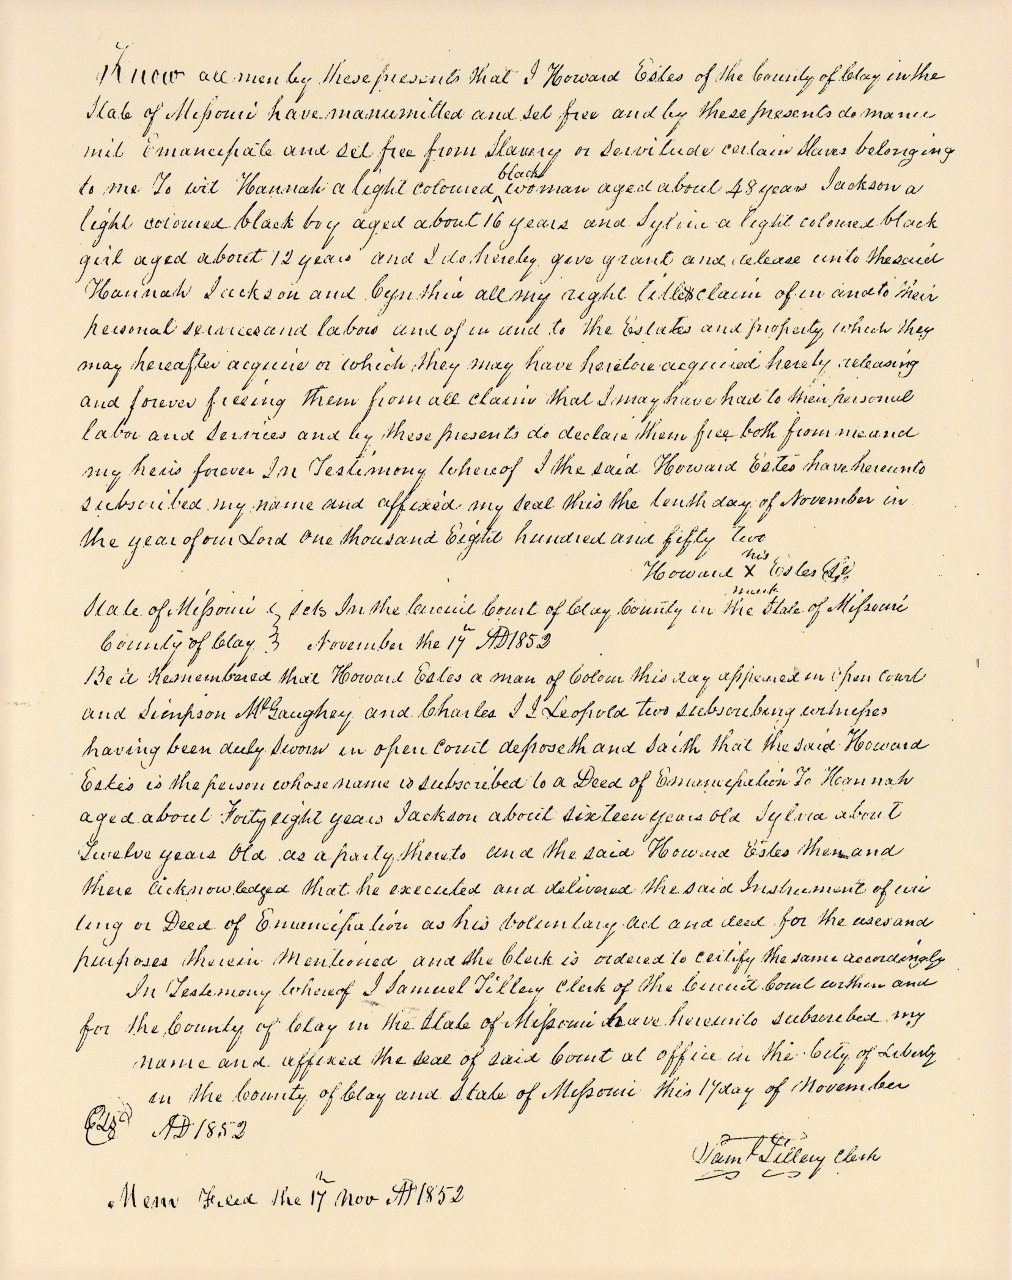 Know all men by these presents that I Howard Estes of the County of Clay in the
State of Missouri have manumitted and set free and by these presents do manu
mit Emancipate and set free from Slavery or servitude certain Slaves belonging
to me To wit Hannah a light coloured ^black woman aged about 48 years Jackson a
light coloured black boy aged about 16 years and Sylvia a light coloured black
girl aged about 12 years and I do hereby give grant and release unto the said
Hannah Jackson and Cynthia all my right title & claim of in and to their
personal services and labors and of in and to the Estates and property which they
may hereafter acquire or which they may have heretore acquired hereby releasing
and forever freeing them from all claim that I may have had to their personal
labor and services and by these presents do declare them free both from me and
my heirs forever In Testimony Whereof I the said Howard Estes have hereunto
subscribed my name and affixed my seal this the tenth day of November in
the year of our Lord One thousand Eight hundred and fifty two
his
Howard X Estes
mark
State of Missouri } Sct In the Circuit Court of Clay County in the State of Missouri
County of Clay } November the 17th AD 1852
Be it Remembered that Howard Estes a man of Colour this day appeared in Open Court
and Simpson McGaughey and Charles J J Leopold two subscribing witnesses
having been duly sworn in open court deposeth and saith that the said Howard
Estes is the person whose name is subscribed to a Deed of Emancipation To Hannah
aged about Forty eight years Jackson about sixteen years old Sylvia about
Twelve years Old as a party thereto and the said Howard Estes then and
there acknowledged that he executed and delivered the said Instrument of wri
ting or Deed of Emancipation as his voluntary act and deed for the uses and
purposes therein mentioned and the Clerk is ordered to certify the same accordingly
In Testimony Whereof I Samuel Tillery Clerk of the Circuit Court within and
for the County of Clay in the State of Missouri have hereunto subscribed my
name and affixed the seal of said Court at office in the City of Liberty
in the County of Clay and State of Missouri this 17 day of November
AD 1852
Saml Tillery Clerk
Mem Filed the 17th Nov AD 1852